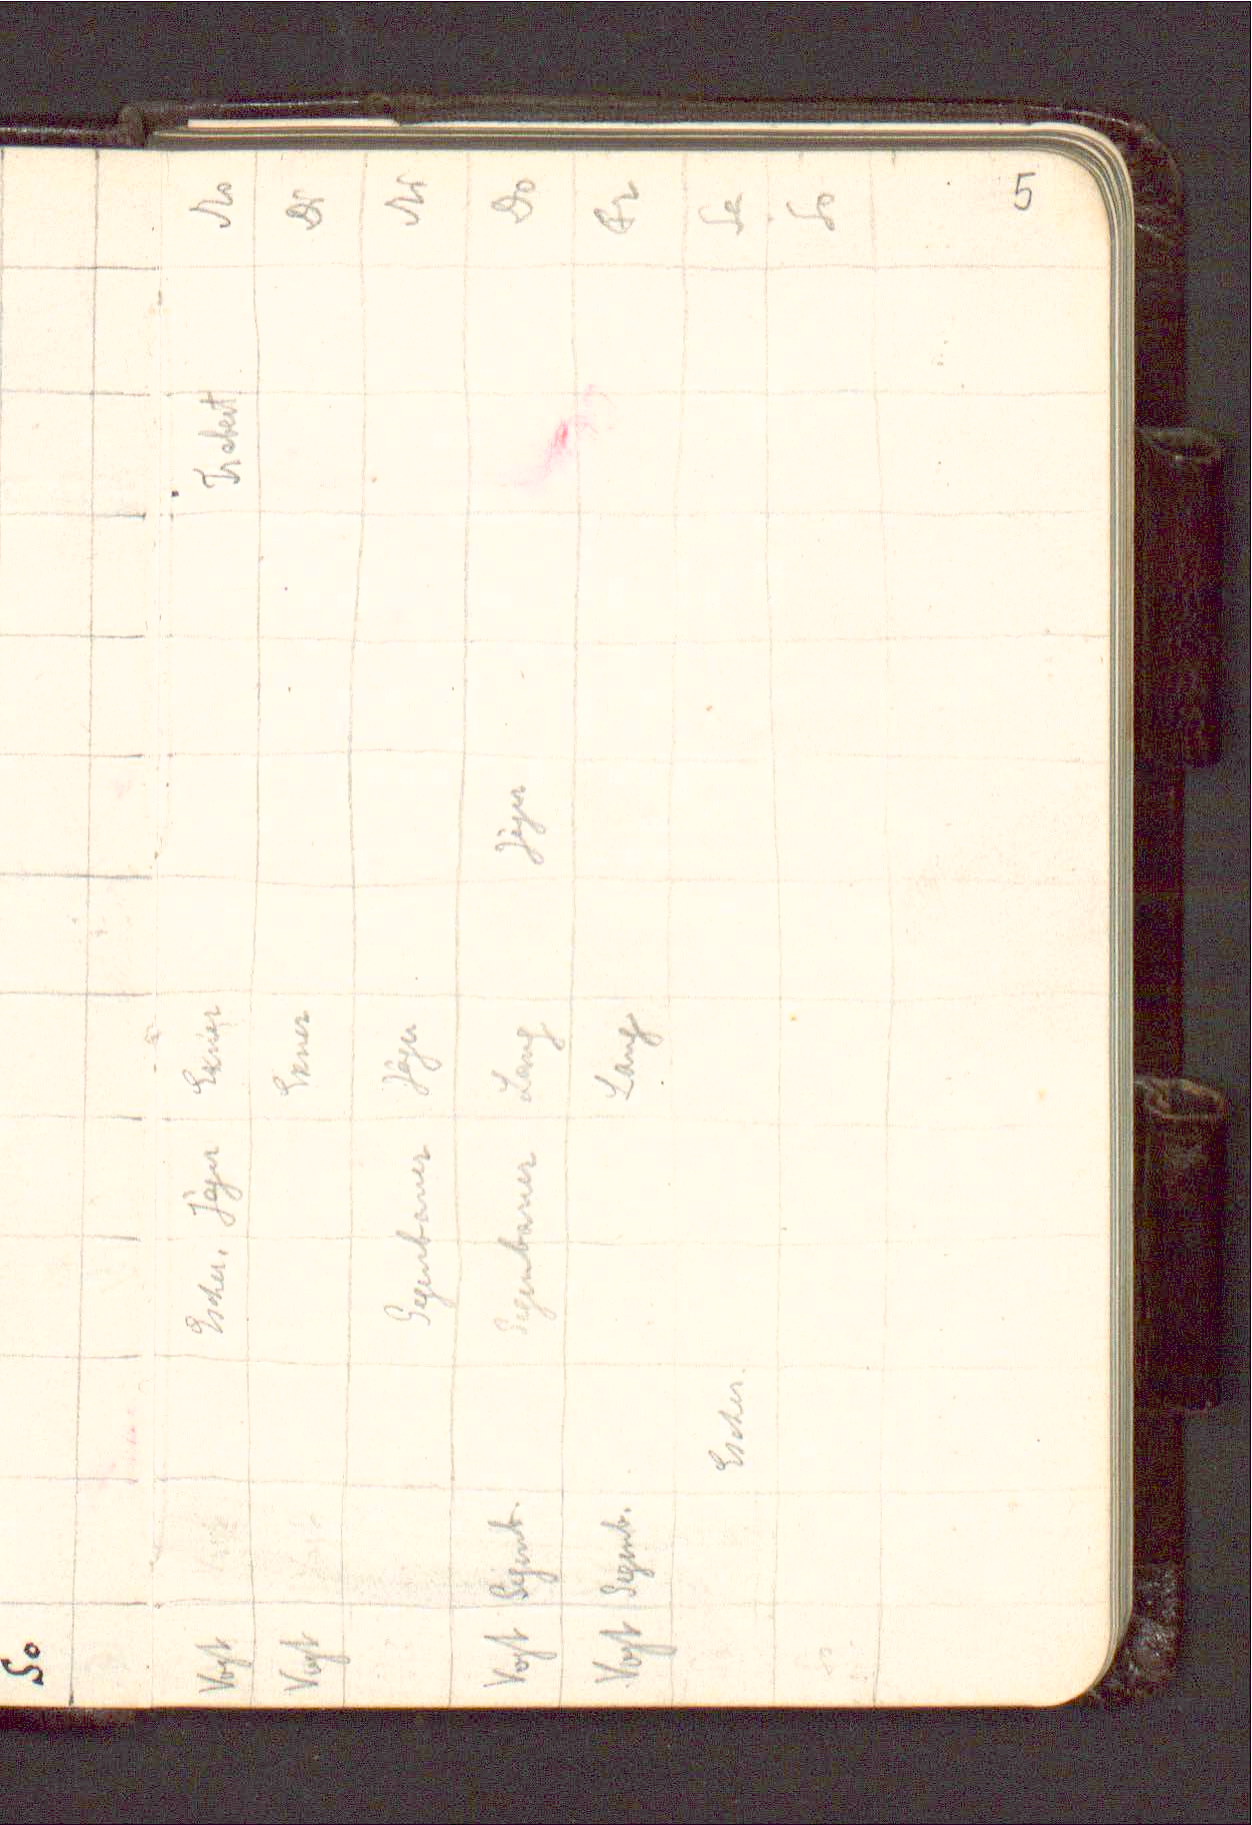 5
Vogt Escher, Jäger Exner Trabert Mo
Vogt Exner Di
Gegenbauer Jäger Mi
Vogt Gegenb. Gegenbauer Lang Jäger Do
Vogt Gegenb. Lang Fr
Escher. Sa
So
So